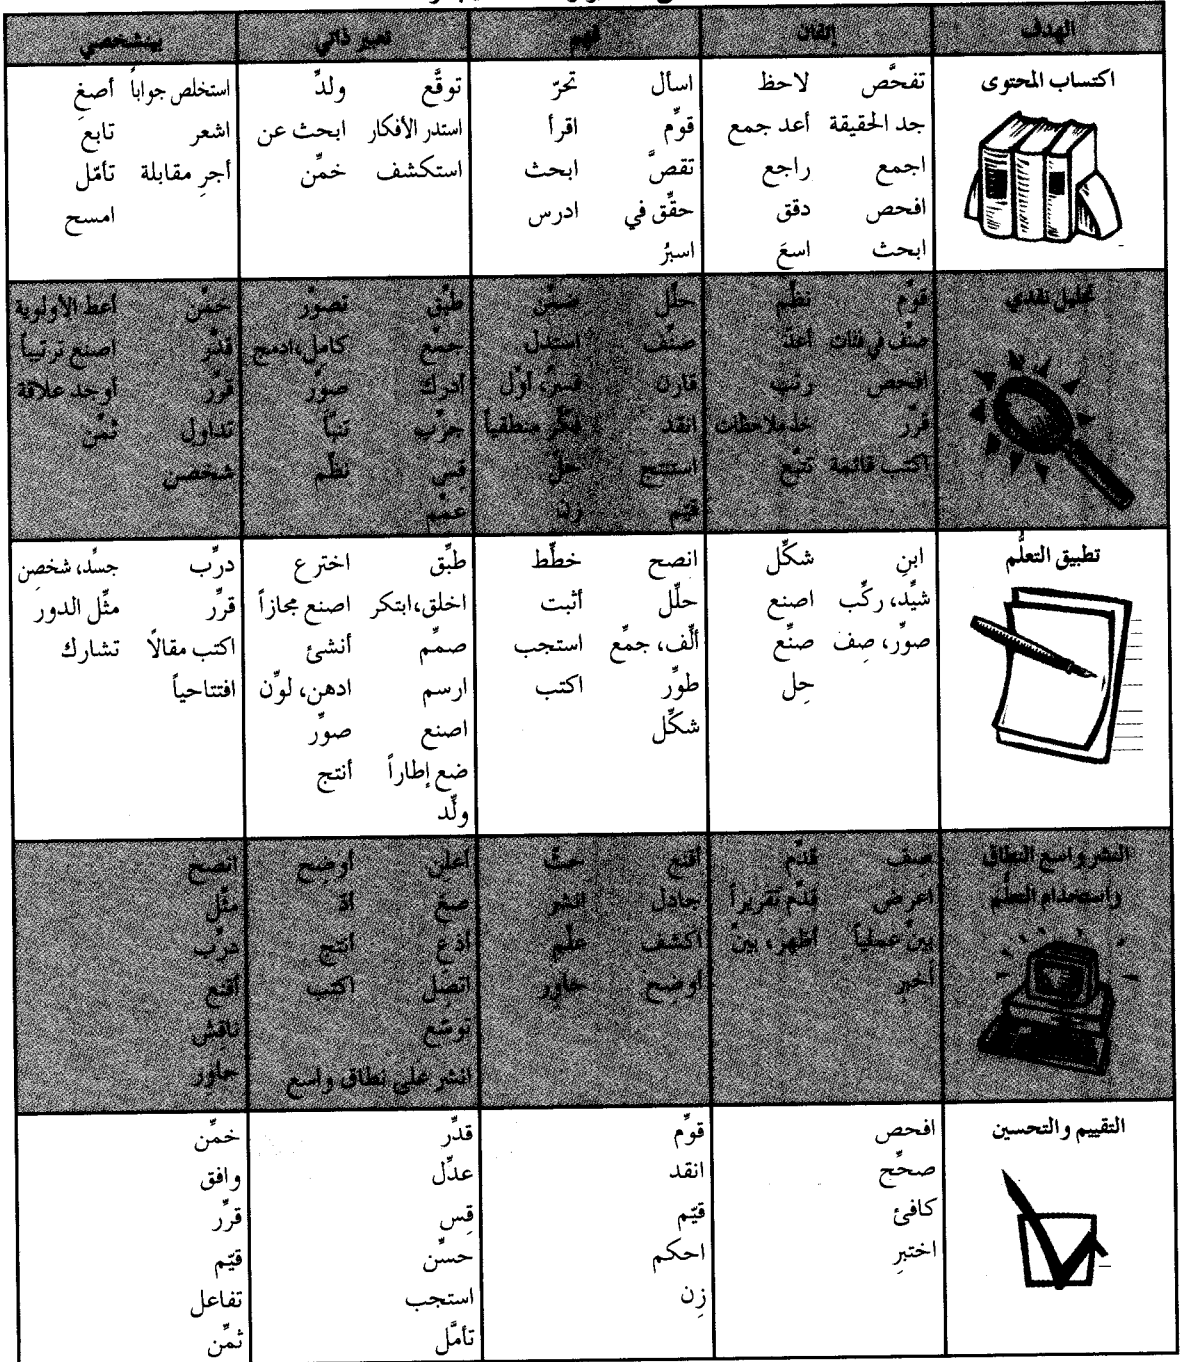 الهدف إتقان فهم تعبير ذاتي بينشخصي
اكتساب المحتوى
تفحَّص لاحظ
جد الحقيقة أعد جمع
اجمع راجع
افحص دقق
ابحث اسعَ
اسأل تحرّ
قوِّم اقرأ
تقصَّ ابحث
حقِّق في ادرس
اسبرُ
توقَّع ولدِّ
استدر الأفكار ابحث عن
استكشف خمِّن
استخلص جواباً أصغِ
اشعر تابع
أجرِ مقابلة تأمّل
امسح
تحليل نقدي
قوِّم نظِّم
صنِّف في فئات أعدّ
افحص رتّب
قرِّر خذ ملاحظات
اكتب قائمة تتبّع
حلِّل ضمِّن
صنِّف استدل
قارن فسِّر، أوِّل
انقد فكّر منطقياً
استنتج حلّ
قيّم زن
طبِّق تصوّر
جمّع كامل،ادمج
أدرك صوِّر
جرِّب تنبّأ
قِس نظِّم
عمِّم
خمِّن أعط الأولوية
قدِّر اصنع ترتيباً
قرِّر أوجد علاقة
تداول ثمِّن
شخصن
تطبيق التعلُّم
ابنِ شكِّل
شيِّد، ركِّب اصنع
صوِّر، صِف صنِّع
حِل
انصح خطِّط
حلِّل أثبت
ألِّف، جمِّع استجب
طوِّر اكتب
شكِّل
طبِّق اخترع
اخلق،ابتكر اصنع مجازاً
صمِّم أنشئ
ارسم ادهن، لوِّن
اصنع صوِّر
ضع إطاراً أنتج
ولِّد
درِّب جسِّد، شخصِن
قرِّر مثِّل الدور
اكتب مقالًا تشارك
افتتاحياً
النشر واسع النطاق
واستخدام التعلُّم
صِف قدِّم
اعرض قدِّم تقريراً
بينّ عملياً أظهر، بينّ
أخبر
أقنع حثّ
جادل انشر
اكشف علِّم
أوضح حاوِر
أعلن أوضح
صغ أدِّ
أذع أنتج
اتصِل اكتب
توسّع
انشر على نطاق واسع
انصح
مثِّل
درِّب
أقنع
ناقش
حاوِر
التقييم والتحسين
افحص
صحِّح
كافئ
اختبرِ
قوِّم
انقد
قيّم
احكم
زِن
قدِّر
عدِّل
قِس
حسِّن
استجب
تأمَّل
خمِّن
وافق
قرِّر
قيّم
تفاعل
ثمِّن